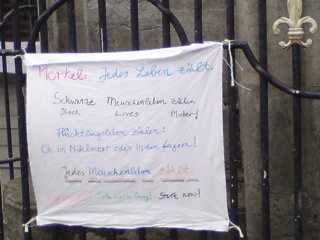 Merkel: Jedes Leben zählt.
Schwarze Menschenleben zählen
Black Lives Mater!
Flüchtlingsleben zählen:
Ob im Mittelmeer oder in den Lagern!
Jedes Menschenleben zählt
Start now!